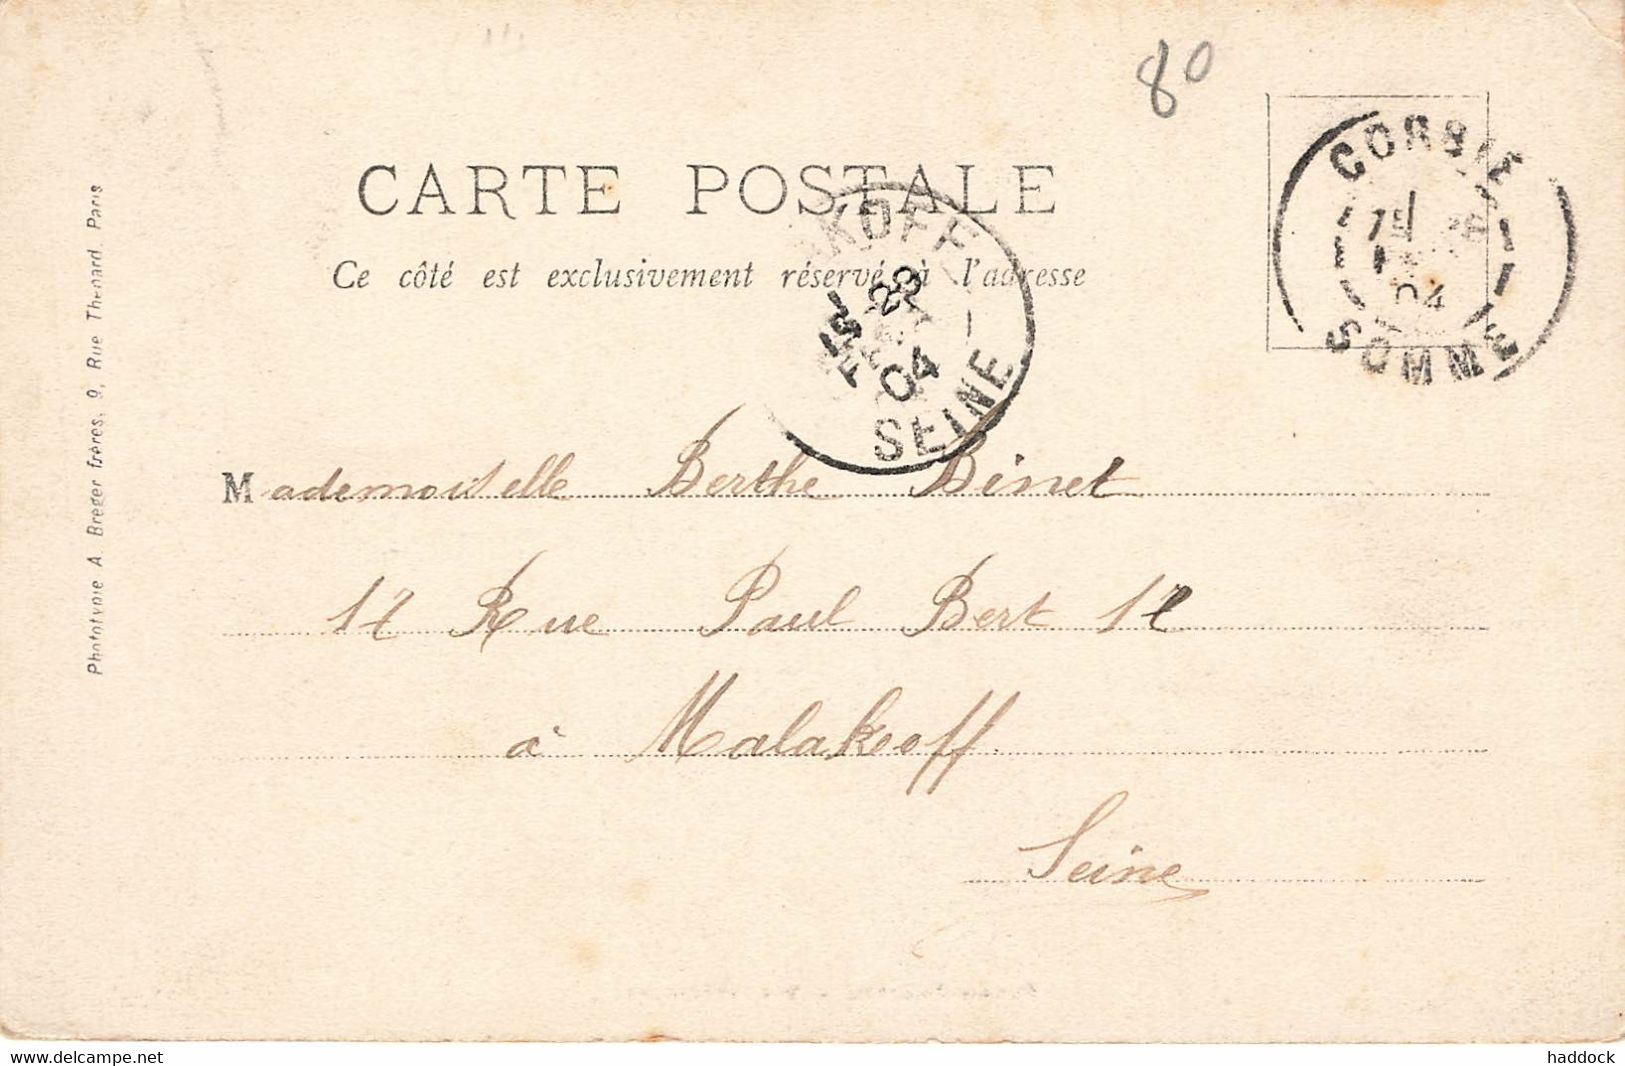 80
CARTE POSTALE
Ce côté est exclusivement réservé à l'adresse
CORBIE
04
SOMME
KOFF
15 23
FEVR
04
SEINE
Mademoiselle Berthe Binet
17 Rue Paul Bert 17
à Malakoff
Seine
Phototypie A Breger frères, 9, Rue Thénard, Paris
www.delcampe.net
haddock